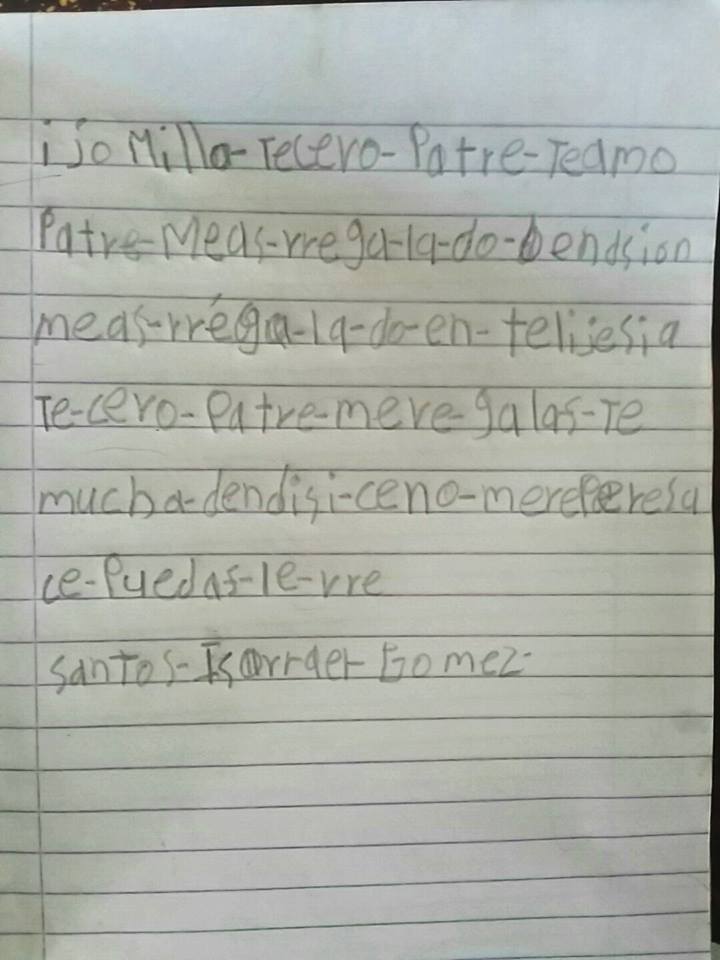 ijo Millo-Tecero-Patre-Teamo
Patre-Meas-rrega-la-do-bendsion
meas-rréga-la-do-en-telijesia
Te-cero-Patre-mere-galas-Te
mucha-dendisi-ceno-merePeresa
ce-Puedas-le-rre
santos-Gomez-